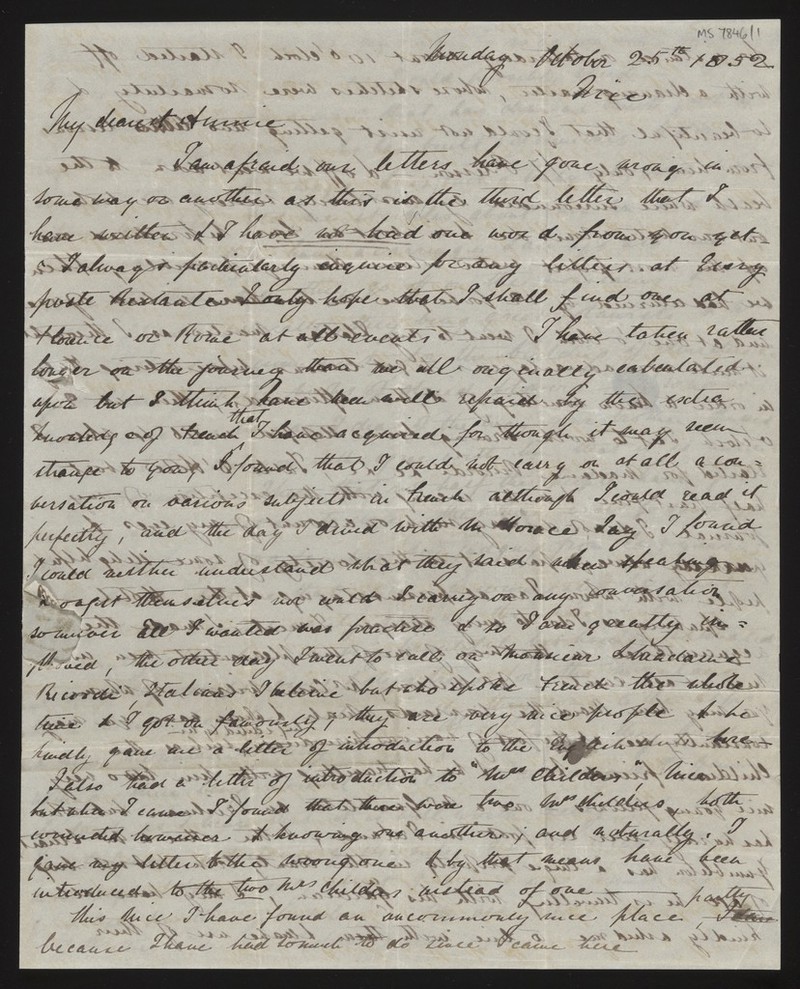 MS 7846/1
Monday October 25th 1852
Nice
My dearest Annie
I am afraid our letters have gone wrong in
some way or another as this is the third letter that I
have written & I have not had one word from you yet
& I always particularly enquire for any letters at Every
poste Restante I only hope that I shall find one at
Florence or Rome at all events I have taken rather
longer on the journey than we all originally calculated
upon but I think I have been well repaid by the extra
knowledge of French that I have acquired for though it may seem
strange to you, I found that I could not carry on at all a con=
versation on various subjects in French although I could read it
perfectly, and the day I dined with Mr Horace Say I found
I could neither understand what they said when speaking
amongst themselves nor could I carry on any conversation
so all I wanted was practice & so I am greatly im=
proved, the other day I went to call on Monsieur & Madame
Ricordi, Italians I believe but who spoke French the whole
time & I got on famously, they are very nice people & he
kindly gave me a letter of introduction to the here
I also had a letter of introduction to "Mrs Childers", Nice
but when I came I found that there were two Mrs Childers both
however & knowing one another; and naturally, I
gave my letter to the wrong one & by that means have been
introduced to the two Mrs Childers instead of one
This Nice I have found an uncommonly nice place, partly
because I have had so much to do since I came here